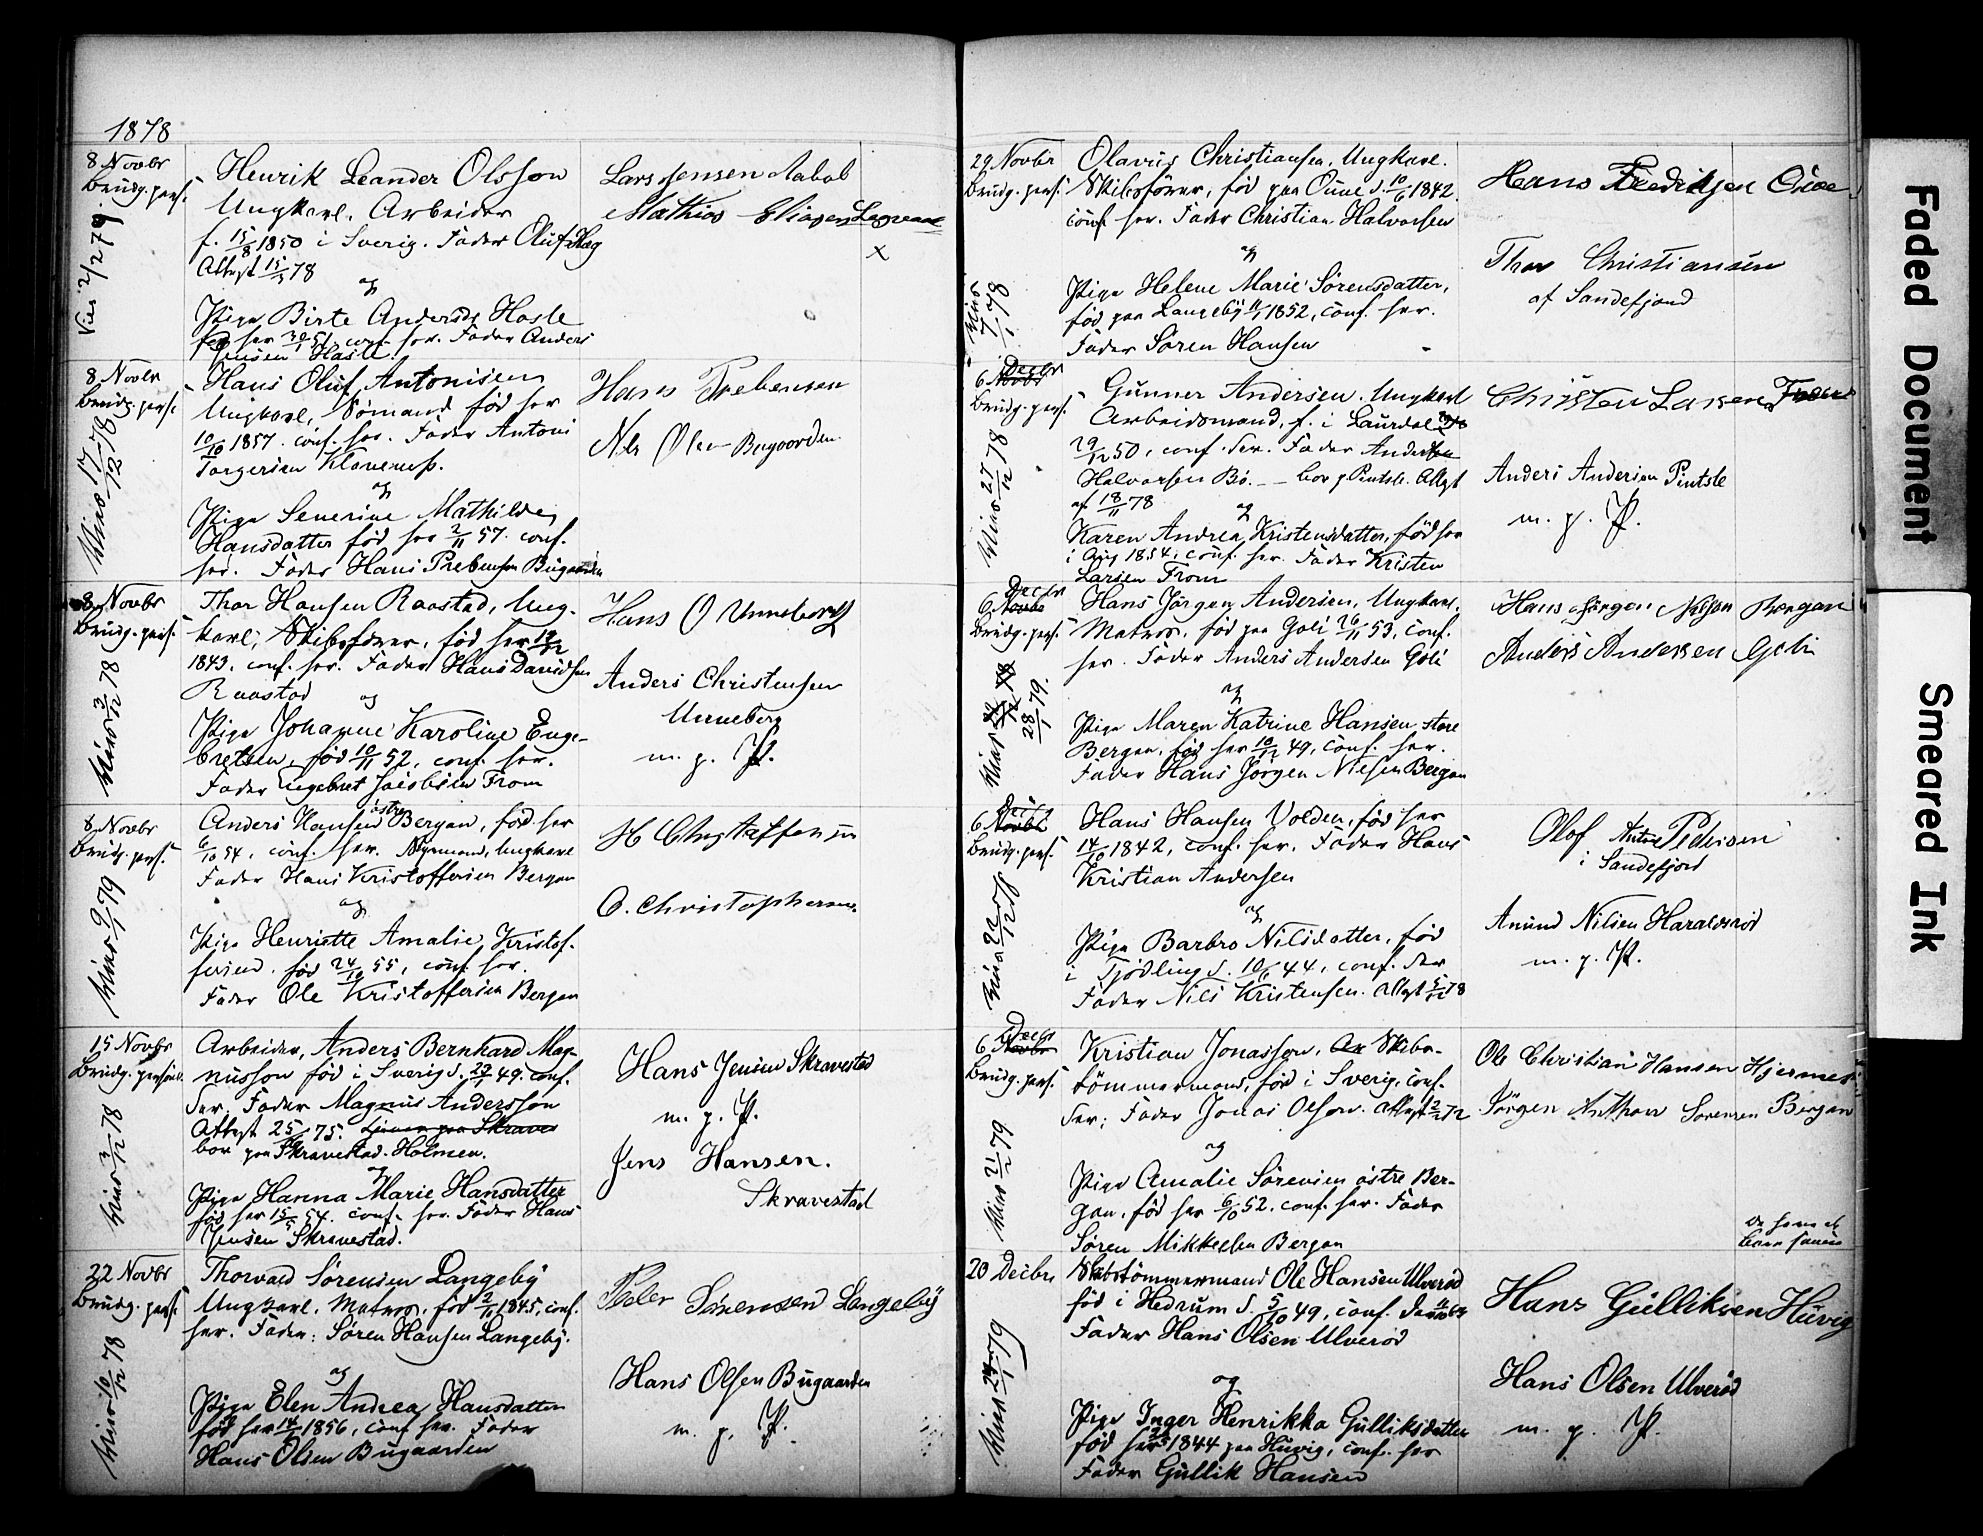 1878
8 Novbr
Brudg. pers.
Viet 2/2 79
Henrik Leander Olsson
Ungkarl. Arbeider
f. 15/8 1850 i Sverig. Fader Oluf
Attest 15/ 78
og
Pige Birte Andersd. Hasle
her 30/1 51 conf. her. Fader Anders
Jensen Hasle.
Lars Jensen
Mathias
x
8 Novbr
Brudg. pers.
Viet 17/12 78
Hans Oluf Antonisen
Ungkarl, Sömand född her
10/10 1857. conf. her. Fader Antoni
Torgersen Klavenes.
og
Pige Severine Mathilde
Hansdatter född her 2/11 57. conf.
her. Fader Hans Prebensen Bugaarden
Hans Prebensen
Nils Olsen Bugaarden
8 Novbr
Brudg. pers.
Viet 3/12 78
Thor Hansen Raastad, Ung-
karl, Skibsförer, född her
1843, conf. her. Fader Hans Davidsen
Raastad og
Pige Johanne Karoline Enge-
bretsen, född 10/11 52, conf. her.
Fader Engebret Jacobsen From
Hans O Unneberg
Anders Christensen
Unneberg
m. p. P.
8 Novbr
Brudg. pers.
Viet 9/1 79
Anders Hansen östre Bergan, född her
6/10 54, conf. her. Ungkarl
Fader Hans Kristoffersen Bergan
og
Pige Henriette Amalie Kristof-
fersend. född 24/10 55, conf. her.
Fader Ole Kristoffersen Bergan
H Christaffersen
O. Christophersen
15 Novbr
Brudg. personl.
Viet 3/12 78
Arbeider, Anders Bernhard Mag-
nusson född i Sverig d. 29/1 49. conf.
der. Fader Magnus Andersson
Attest 25/ 75.
bor paa Skravestad-Holmen.
og
Pige Hanna Marie Hansdatter
född her 15/5 54. conf. her. Fader Hans
Jensen Skravestad.
Hans Jensen Skravestad
m. p. P.
Jens Hansen.
Skravestad
22 Novbr
Brudg. pers.
Viet 10/12 78
Thorvald Sörensen Langeby
Ungkarl. Matros, född 2/ 1845, conf.
her. Fader: Sören Hansen Langeby.
og
Pige Elen Andrea Hansdatter
född her 14/ 1856, conf her. Fader
Hans Olsen Bugaarden
Peder Sörensen Langeby
Hans Olsen Bugaarden
m. p. P.
29 Novbr
Brudg. pers.
Viet 7/1 78
Olavus Christiansen, Ungkarl.
Skibsförer, född paa Oune d. 10/6 1842.
conf her. Fader Christian Halvorsen
og
Pige Helene Marie Sörensdatter,
född paa Langeby 1852, conf. her.
Fader Sören Hansen
Hans Fredriksen
Thor Christiansen
af Sandefjord
6 Decbr
Brudg. pers.
Viet 27/12 78
Gunner Andersen, Ungkarl
Arbeidsmand, f. i Laurdal
29/12 50, conf. der. Fader Anders
Halvorsen Bö. bor p. Pintsle. Attest
af 18/11 78
og
Karen Andrea Kristensdatter, född her
i Aug 1854, conf. her. Fader Kristen
Larsen From
Christen Larsen
Anders Andersen Pintsle
m. p. P.
6 Decbr
Brudg. pers.
Viet 28/1 79.
Hans Jörgen Andersen, Ungkarl.
Matros, född paa Goli 26/11 53, conf.
her. Fader Anders Andersen Goli
og
Pige Maren Katrine Hansen store
Bergan, född her 10/12 49, conf. her.
Fader Hans Jörgen Nilsen Bergan
Hans Jörgen Nilsen Bergan
Anders Andersen Goli
6 Decbr
Brudg. pers.
Viet 22/12 78
Hans Hansen Volden, född her
14/10 1842, conf. her. Fader Hans
Kristian Andersen
og
Pige Barbro Nilsdatter, född
i Tjödling d. 10/6 44, conf. der
Fader Nils Kristensen. Attest 5/12 78
Olof Anton Pedersen
i Sandefjord
Amund Nilsen Haraldsröd
m. p. P.
6 Decbr
Brudg. pers.
Viet 2/2 79
Kristian Jonassen, Skibs-
tömmermand, född i Sverig, conf.
der. Fader Jonas Olson. Attest 72
og
Pige Amalie Sörensen östre Ber-
gan, född her 6/10 52, conf. her. Fader
Sören Mikkelsen Bergan
Ole Christian Hansen
Jörgen Anthon Sorensen Bergan
De have et
barn
20 Decbr
Viet 79
Skibstömmermand Ole Hansen Ulveröd
född i Hedrum d. 5/10 49, conf.
Fader Hans Olsen Ulveröd
og
Pige Inger Henrikka Gulliksdatter
född her 1844 paa Huvig, conf. her
Fader Gullik Hansen
Hans Gulliksen Huvig
Hans Olsen Ulveröd
m. p. P.
Faded Document
Smeared Ink